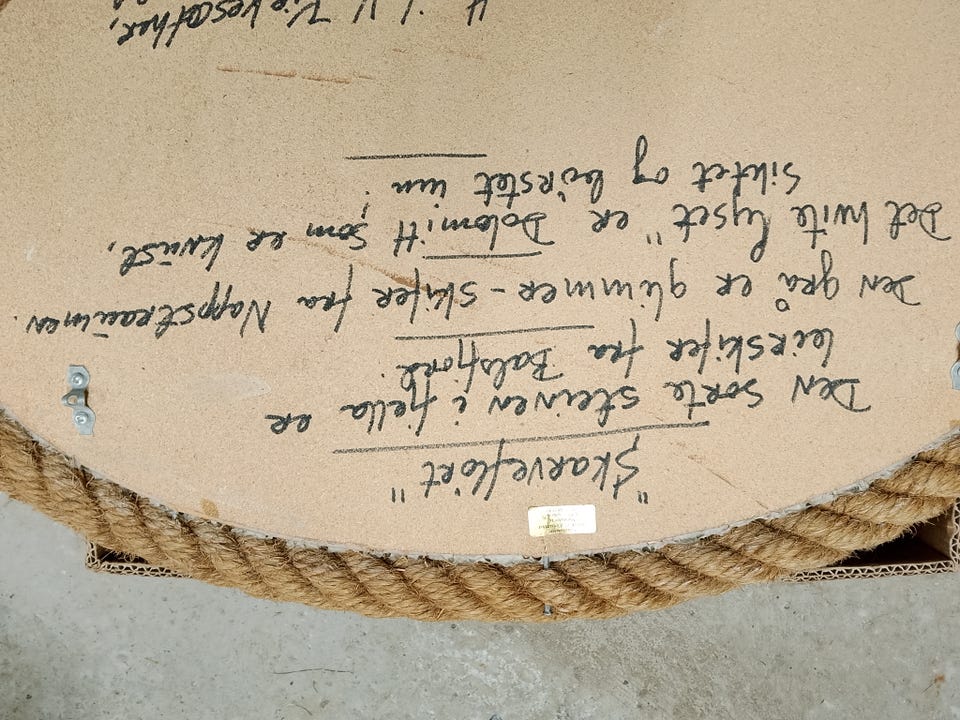 "Skarvefløit"
Den sorte steinen i fjella er
leirskifer fra Balsfjord.
Den grå er glimmer-skifer fra Nappstraumen.
Det hvite lyset" er Dolomitt som er knust,
Siktet og børstet inn.